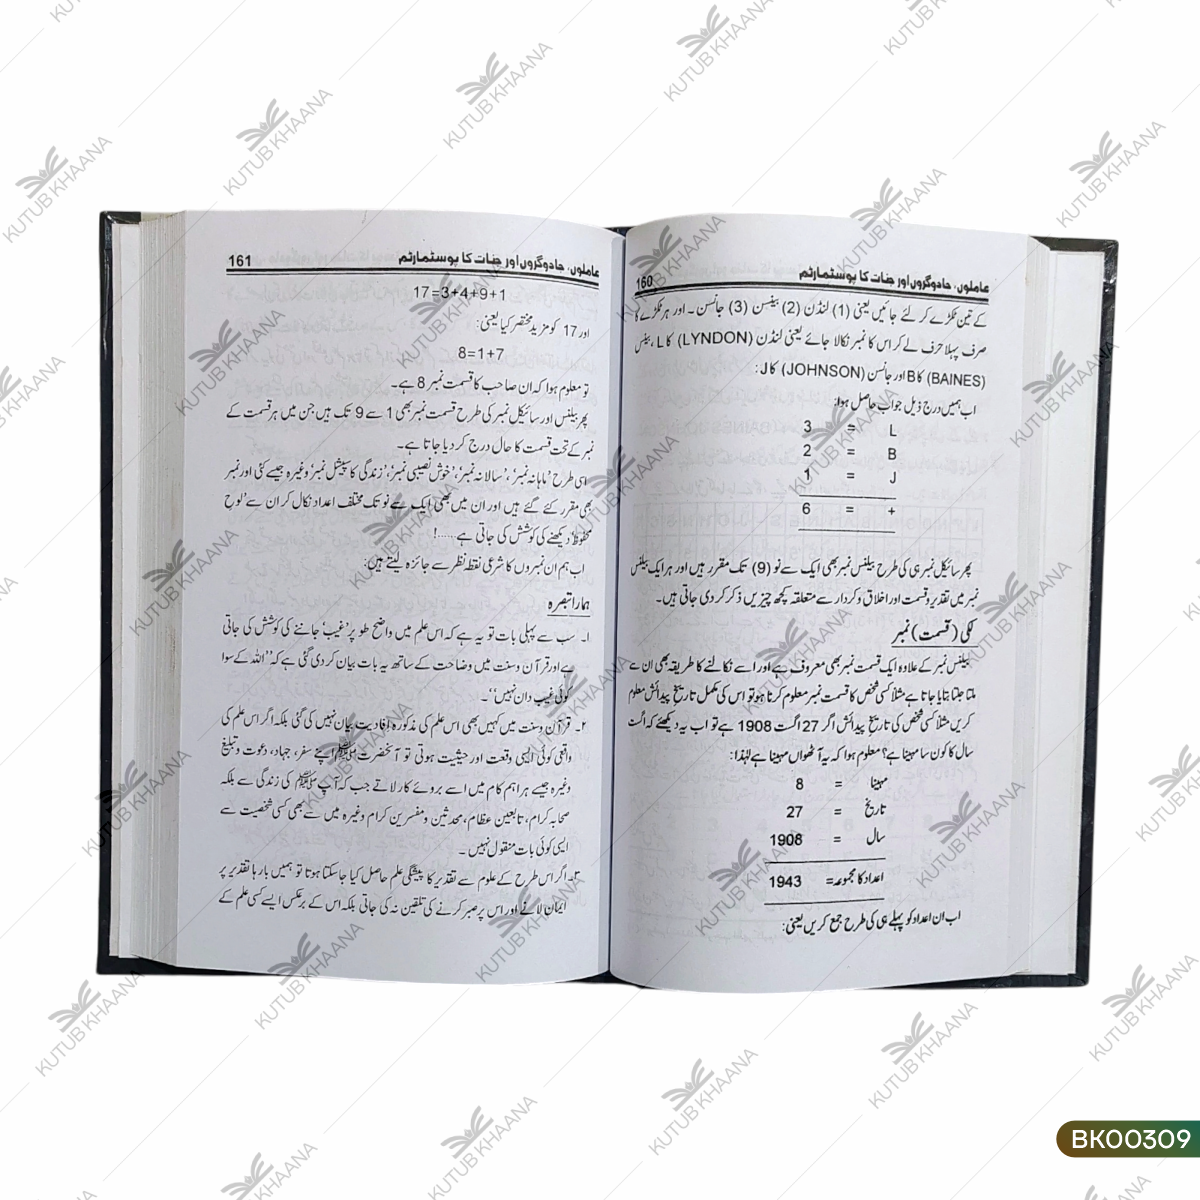 160 عاملوں، جادوگروں اور جنات کا پوسٹمارٹم
کے تین ٹکڑے کر لئے جائیں یعنی (1) لنڈن (2) بینسن (3) جانسن ۔ اور ہر ٹکڑے کا
صرف پہلا حرف لے کر اس کا نمبر نکالا جائے یعنی لنڈن (LYNDON) کا L، بینس
(BAINES) کا B اور جانسن (JOHNSON) کا J:
اب ہمیں درج ذیل جواب حاصل ہوا:
L = 3
B = 2
J = 1
+ = 6
پھر سائیکل نمبر ہی کی طرح بیلنس نمبر بھی ایک سے نو (9) تک مقرر ہیں اور ہر ایک بیلنس
نمبر میں تقدیر وقسمت اور اخلاق وکردار سے متعلقہ کچھ چیزیں ذکر کر دی جاتی ہیں۔
لکی (قسمت) نمبر
بیلنس نمبر کے علاوہ ایک قسمت نمبر بھی معروف ہے اور اسے نکالنے کا طریقہ بھی ان سے
ملتا جلتا بتایا جاتا ہے مثلاً کسی شخص کا قسمت نمبر معلوم کرنا ہو تو اس کی مکمل تاریخ پیدائش معلوم
کریں مثلاً کسی شخص کی تاریخ پیدائش اگر 27 اگست 1908 ہے تو اب یہ دیکھئے کہ اگست
سال کا کون سا مہینا ہے؟ معلوم ہوا کہ یہ آٹھواں مہینا ہے لہٰذا:
مہینا = 8
تاریخ = 27
سال = 1908
اعداد کا مجموعہ= 1943
اب ان اعداد کو پہلے ہی کی طرح جمع کریں یعنی:
161 عاملوں، جادوگروں اور جنات کا پوسٹمارٹم
17=3+4+9+1
اور 17 کو مزید مختصر کیا یعنی:
8=1+7
تو معلوم ہوا کہ ان صاحب کا قسمت نمبر 8 ہے۔
پھر بیلنس اور سائیکل نمبر کی طرح قسمت نمبر بھی 1 سے 9 تک ہیں جن میں ہر قسمت کے
نمبر کے تحت قسمت کا حال درج کر دیا جاتا ہے۔
اسی طرح 'ماہانہ نمبر'، 'سالانہ نمبر'، 'خوش نصیبی نمبر'، 'زندگی کا سپیشل نمبر' وغیرہ جیسے کئی اور نمبر
بھی مقرر کئے گئے ہیں اور ان میں بھی ایک سے نو تک مختلف اعداد نکال کر ان سے 'لوحِ
محفوظ' دیکھنے کی کوشش کی جاتی ہے......!
اب ہم ان نمبروں کا شرعی نقطہ نظر سے جائزہ لیتے ہیں:
ہمارا تبصرہ
۱۔ سب سے پہلی بات تو یہ ہے کہ اس علم میں واضح طور پر 'غیب' جاننے کی کوشش کی جاتی
ہے اور قرآن وسنت میں وضاحت کے ساتھ یہ بات بیان کر دی گئی ہے کہ "اللہ کے سوا
کوئی غیب دان نہیں"۔
۲۔ قرآن وسنت میں کہیں بھی اس علم کی مذکورہ افادیت بیان نہیں کی گئی بلکہ اگر اس علم کی
واقعی کوئی ایسی وقعت اور حیثیت ہوتی تو آنحضرت ﷺ اپنے سفر، جہاد، دعوت و تبلیغ
وغیرہ جیسے ہر اہم کام میں اسے بروئے کار لاتے جب کہ آپ ﷺ کی زندگی سے بلکہ
صحابہ کرام، تابعین عظام، محدثین ومفسرین کرام وغیرہ میں سے بھی کسی شخصیت سے
ایسی کوئی بات منقول نہیں۔
۳۔ اگر اس طرح کے علوم سے تقدیر کا پیشگی علم حاصل کیا جاسکتا ہوتا تو ہمیں بارہا تقدیر پر
ایمان لانے اور اس پر صبر کرنے کی تلقین نہ کی جاتی بلکہ اس کے برعکس ایسے کسی علم کے
KUTUB KHAANA
BK00309